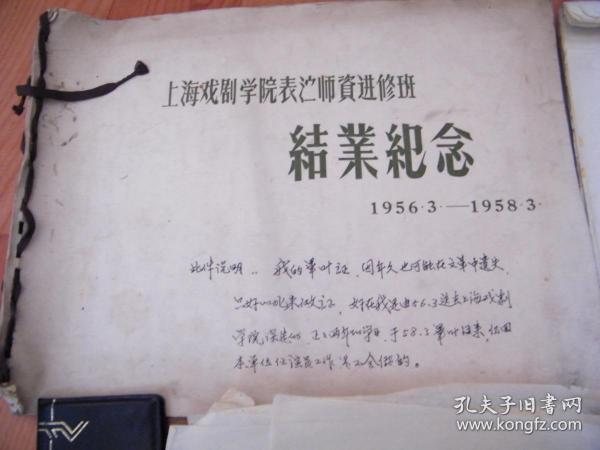 上海戏剧学院表演师資进修班
結業紀念
1956·3·—1958·3·
此件说明：我的毕叶证，因年久也可能在文革中遗失，
只好以此来做证，好在我是由56.3送去上海戏剧
学院深造的，两年的学习，于58.3毕叶回来，仍回
本单位任演员工作 不会假的。
TV
孔夫子旧书网
www.kongfz.com